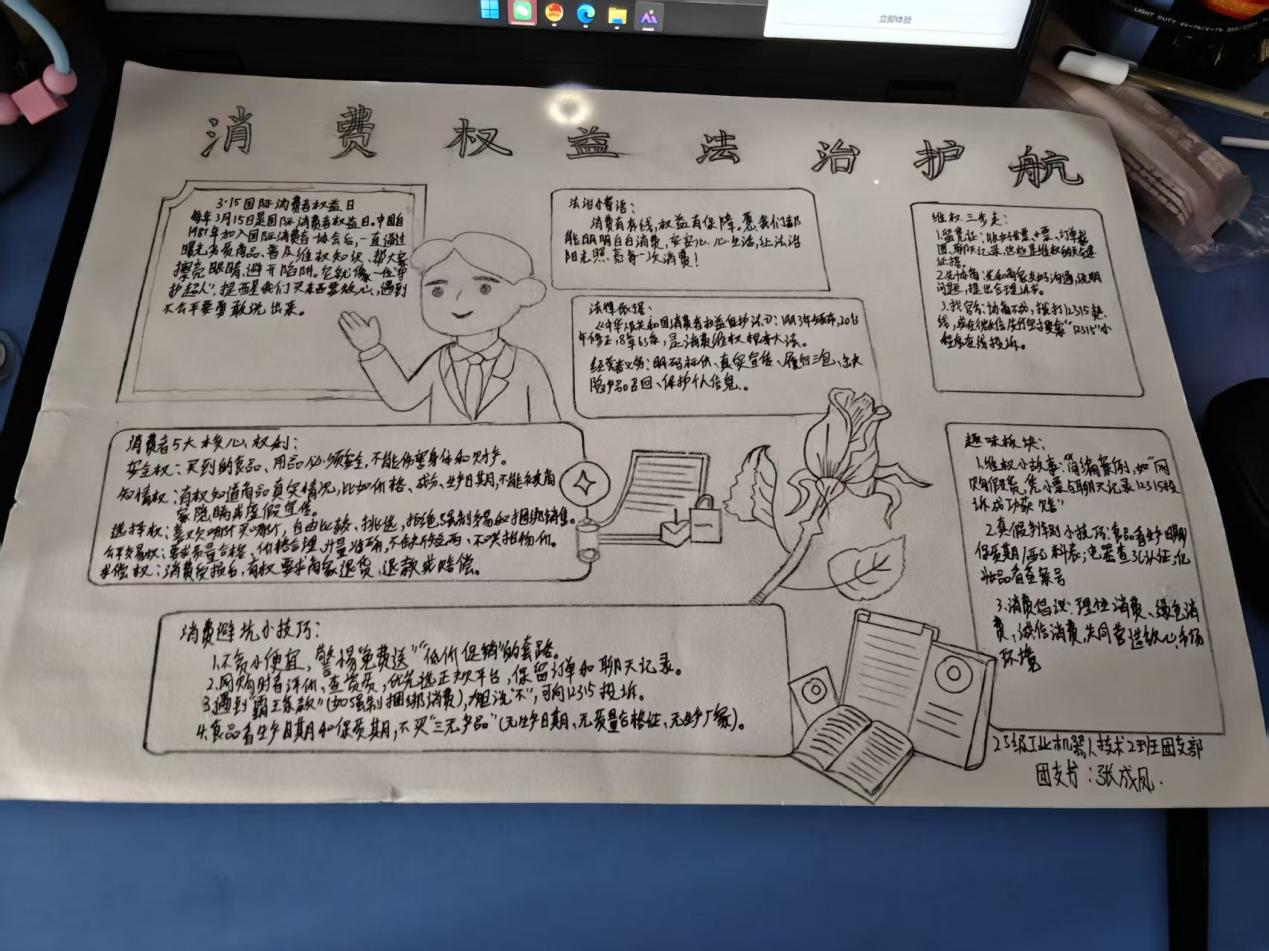 立即体验
LIGHT DUTY
消费权益法治护航
3·15国际消费者权益日
每年3月15日是国际消费者权益日。中国自
1987年加入国际消费者协会后,一直通过
曝光劣质商品、普及维权知识、帮大家
擦亮眼睛,避开陷阱。它就像一位"守
护超人",提醒我们买东西要放心,遇到
不公平要勇敢说出来。
法治小寄语:
消费有界线,权益有保障。愿我们都
能明明白白消费,安安心心生活,让法治
阳光照亮每一次消费!
法律依据:
《中华人民共和国消费者权益保护法》:1993年颁布,2013
年修正,8章63条,是消费维权根本大法。
经营者义务:明码标价、真实宣传、履行三包、缺
陷产品召回、保护个人信息。
维权三步走:
1.留凭证:购物发票、小票、订单截
图、聊天记录,这些是维权的关键
证据。
2.先协商:先和商家友好沟通,说明
问题,提出合理诉求。
3.找官方:协商不成,拨打12315热
线,或在微信/支付宝搜索"12315"小
程序在线投诉。
消费者5大核心权利:
安全权:买到的食品、用品必须安全,不能伤害身体和财产。
知情权:有权知道商品真实情况,比如价格、成分、生产日期,不能被商
家隐瞒或虚假宣传。
选择权:喜欢哪个买哪个,自由比较、挑选,拒绝强制交易和捆绑销售。
公平交易权:要求质量合格、价格合理、计量准确,不缺斤短两、不哄抬物价。
求偿权:消费受损后,有权要求商家退货、退款或赔偿。
趣味板块:
1.维权小故事:简编案例,如"网
购假货,凭小票与聊天记录12315投
诉成功获赔"
2.真假辨别小技巧:食品看生产日期/
保质期/配料表;电器查3C认证;化
妆品看备案号
3.消费倡议:理性消费、绿色消
费、诚信消费,共同营造放心市场
环境
消费避坑小技巧:
1.不贪小便宜,警惕"免费送""低价促销"的套路。
2.网购时看评价、查资质,优先选正规平台,保留订单和聊天记录。
3.遇到"霸王条款"(如强制捆绑消费),大胆说"不",可向12315投诉。
4.食品看生产日期和保质期,不买"三无产品"(无生产日期、无质量合格证、无生产厂家)。
25级工业机器人技术2班团支部
团支书:张成凤.